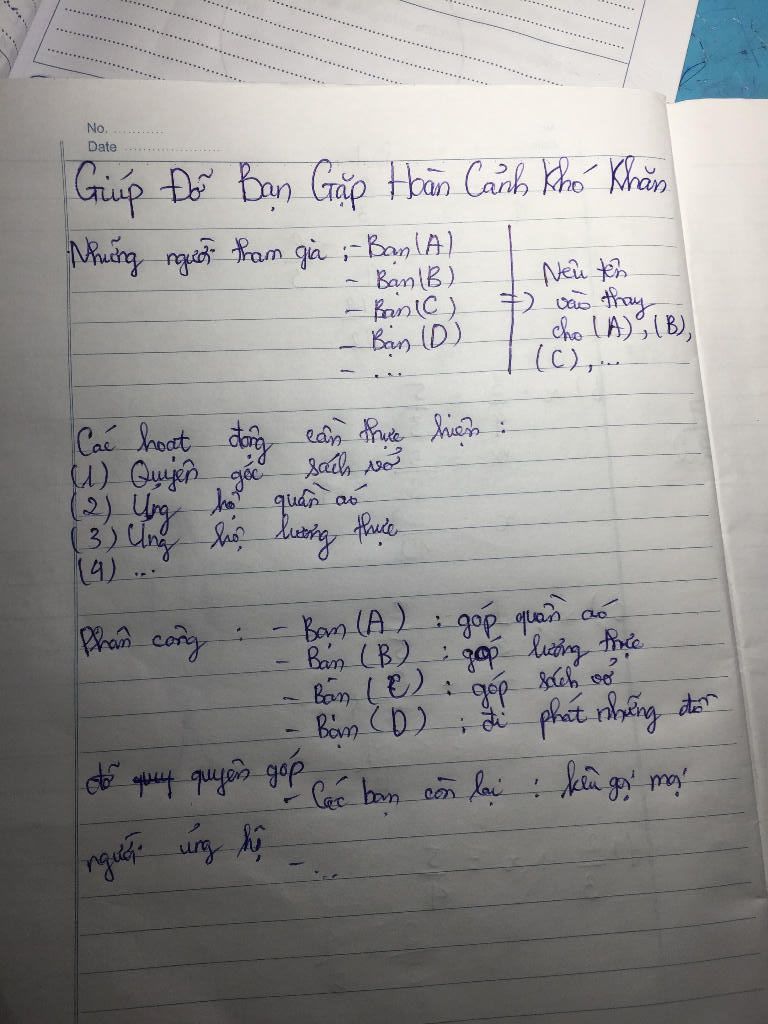 No. ...........
Date ......................
Giúp Đỡ Bạn Gặp Hoàn Cảnh Khó Khăn
Những người tham gia : - Bạn (A)
- Bạn (B)
- Bạn (C)
- Bạn (D)
- ...
=> Nêu tên
vào thay
cho (A), (B),
(C), ...
Các hoạt động cần thực hiện :
(1) Quyên góc sách vở
(2) Ủng hộ quần áo
(3) Ủng hộ lương thực
(4) ...
Phân công : - Bạn (A) : góp quần áo
- Bạn (B) : góp lương thực
- Bạn (C) : góp sách vở
- Bạn (D) : đi phát những đồ
quyên góp
- Các bạn còn lại : kêu gọi mọi
người ủng hộ
- ...